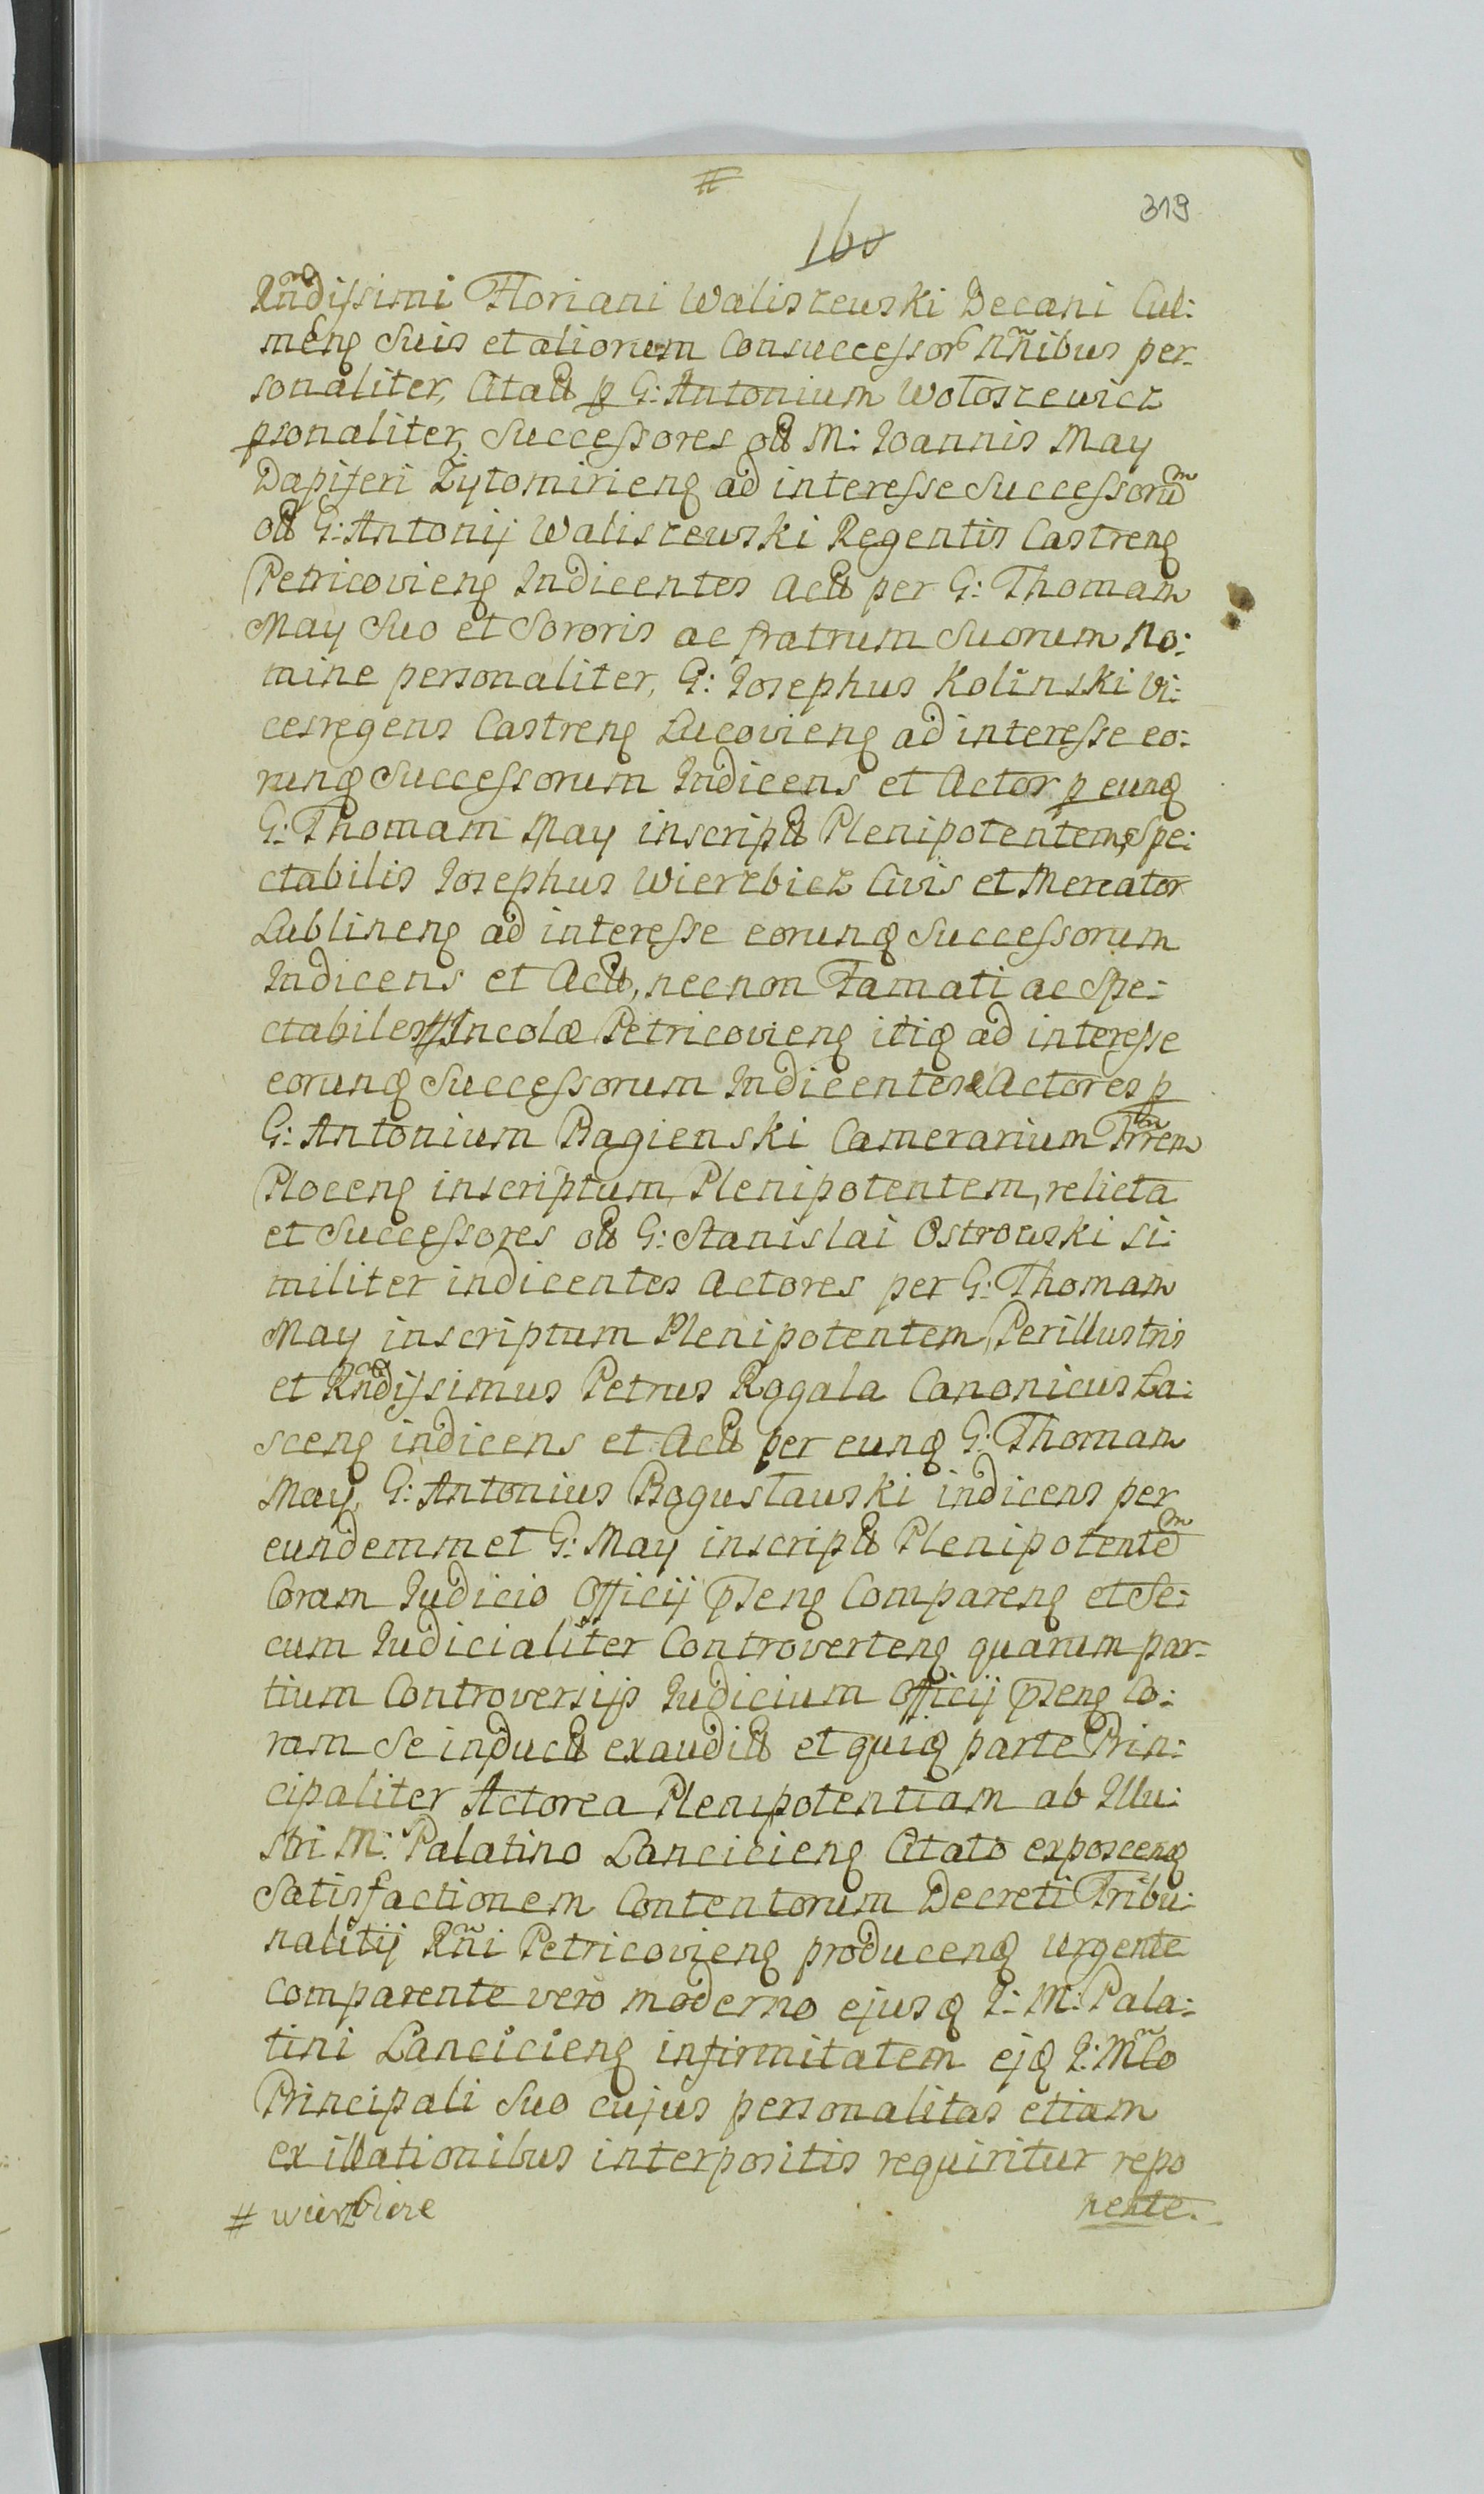 #
319
160
Rñdissimi Floriani Waliszewski Decani Cul:
menẽ Suis et aliorum Consuccessor̃ Nñibus per-
sonaliter, Citañ p G: Antonium Wołoszewicz
psonaliter, Successores olł M: Joannis May
Dapiferi Zytomirienẽ ad interesse Successorũm
olł G: Antonij Waliszewski Regentis Castrenẽ
Petricovienẽ Indicentes Actł per G: Thomam
May Suo et Sororis ac fratrum Suorum No:
mine personaliter, G: Josephus Kolinski Vi:
cesregens Castrenẽ Lucovienẽ ad interesse eo:
runđ Successorum Indicens et Actor p eunđ
G: Thomam May inscripł Plenipotentem, Spe:
ctabilis Josephus Wierzbicz Civis et Mercator
Lublinenẽ ad interesse eorunđ Successorum
Indicens et Actł, necnon Famati ac Spe:
ctabiles # Incolæ Petricovienẽ itiđ ad interesse
eorunđ Successorum Indicentes & Actores p
G: Antonium Bagienski Camerarium Trr̃em
Plocenẽ inscriptum Plenipotentem, relicta
et Successores olł G: Stanislai Ostrowski si:
militer indicentes Actores per G: Thomam
May inscriptum Plenipotentem, Perillustris
et Rñdissimus Petrus Rogala Canonicus La:
scenẽ indicens et Actł per eunđ G: Thomam
May, G: Antonius Bogusławski indicens per
eundemmet G: May inscripł Plenipotentem
Coram Judicio Officij p̃senẽ Comparenẽ et Se:
cum Judicialiter Controvertenẽ quarum par-
tium Controversijs Judicium Officij p̃senẽ Co:
ram Se inductł exaudił et quiđ parte Prin:
cipaliter Actorea Plenipotentiam ab Illu:
stri M: Palatino Lancicienẽ Citato exposcenđ
Satisfactionem Contentorum Decreti Tribu:
nalitij Rñi Petricovienẽ producenđ urgente
comparente vero moderno ejusđ I: M: Pala:
tini Lancicienẽ infirmitatem ejđ I: M̃co
Principali Suo cujus personalitas etiam
ex illationibus interpositis requiritur repo
nente.